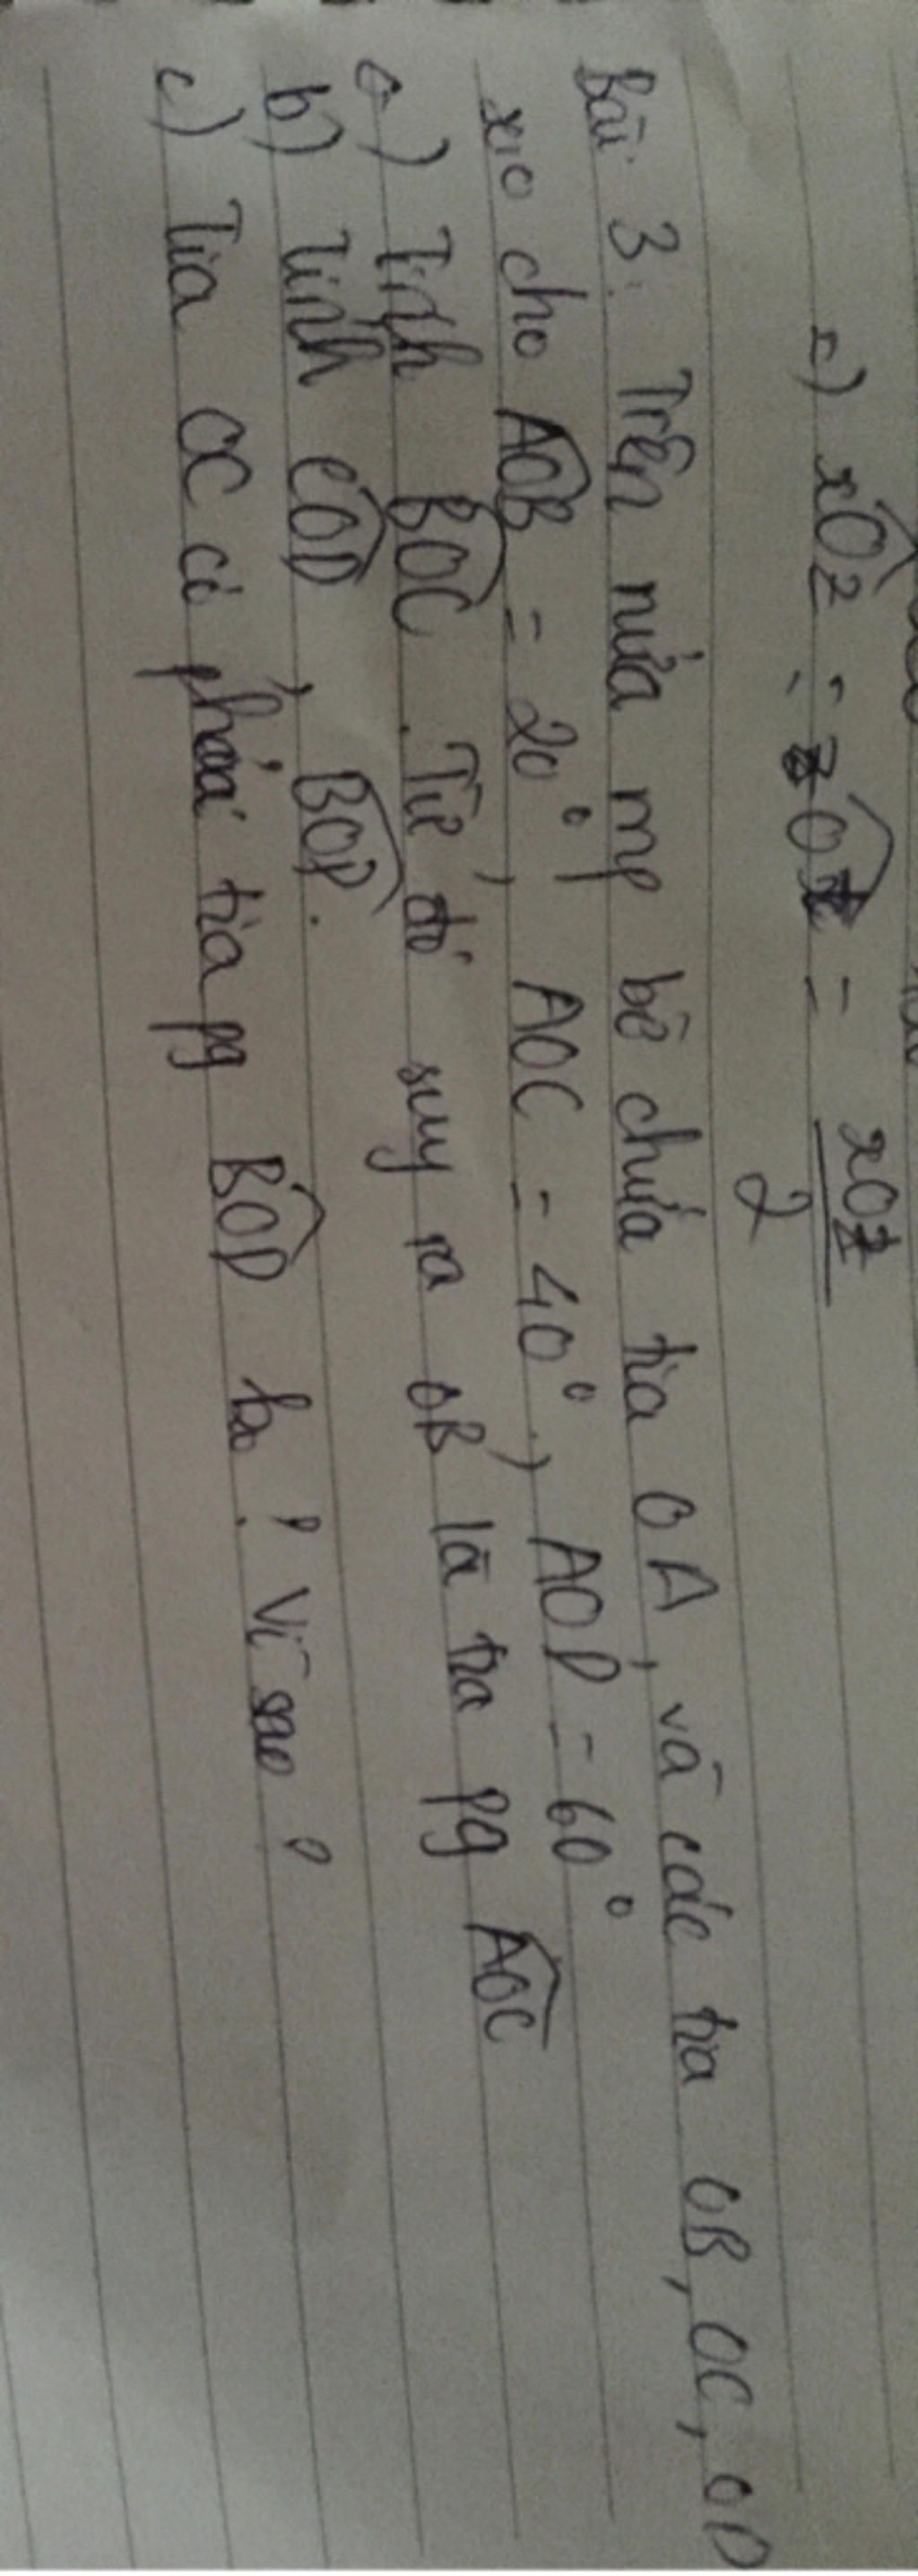 c) xOz = zOt = xOt / 2
Bài 3: Trên nửa mp bờ chứa tia OA, vẽ các tia OB, OC, OD
sao cho AOB = 20°, AOC = 40°, AOD = 60°
a) Tính BOC. Từ đó suy ra OB là tia pg AOC
b) Tính COD, BOD.
c) Tia OC có phải tia pg BOD ko? Vì sao?